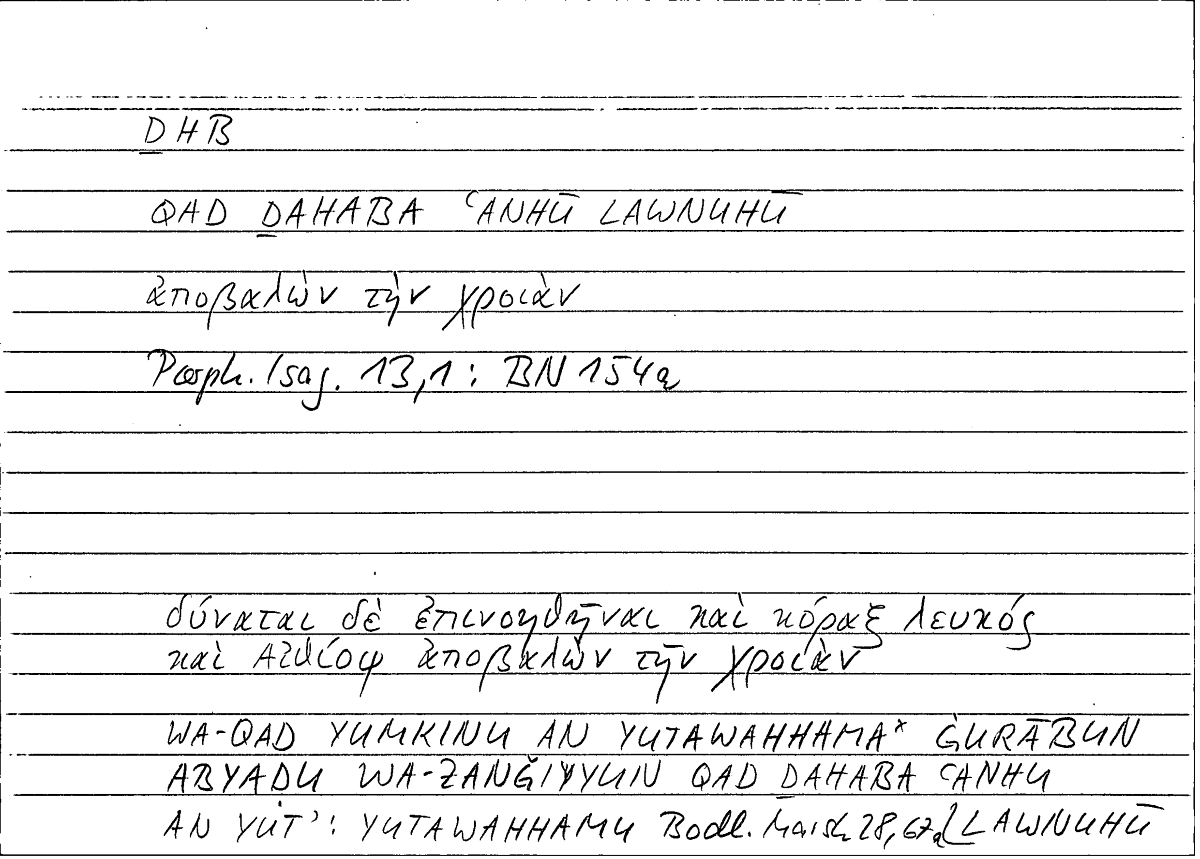 ḎHB
QAD ḎAHABA ʿANHŪ LAWNUHŪ
ἀποβαλὼν τὴν χροιὰν
Porph. Isag. 13,1: BN 154a
δύναται δὲ ἐπινοηθῆναι καὶ κόραξ λευκός
καὶ Αἰθίοψ ἀποβαλὼν τὴν χροιὰν
WA-QAD YUMKINU AN YUTAWAHHAMA* ĠURĀBUN
ABYADU WA-ZANǦIYYUN QAD ḎAHABA ʿANHU
AN YUT': YUTAWAHHAMU Bodl. Marsh 28,67a LAWNUHŪ